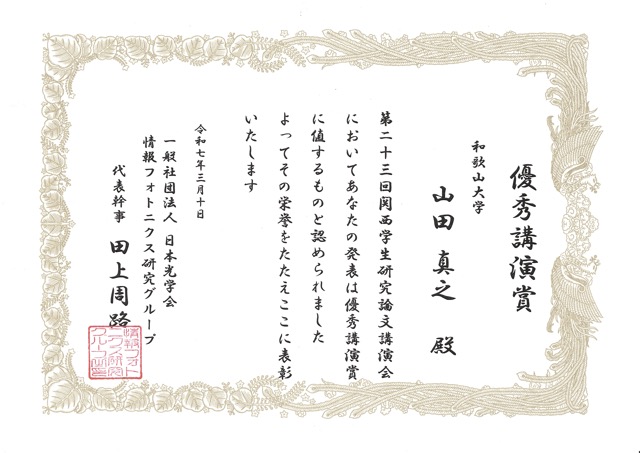 優秀講演賞
和歌山大学
山田真之 殿
第二十三回関西学生研究論文講演会
においてあなたの発表は優秀講演賞
に値するものと認められました
よってその栄誉をたたえここに表彰
いたします
令和七年三月十日
一般社団法人 日本光学会
情報フォトニクス研究グループ
代表幹事 田上周路